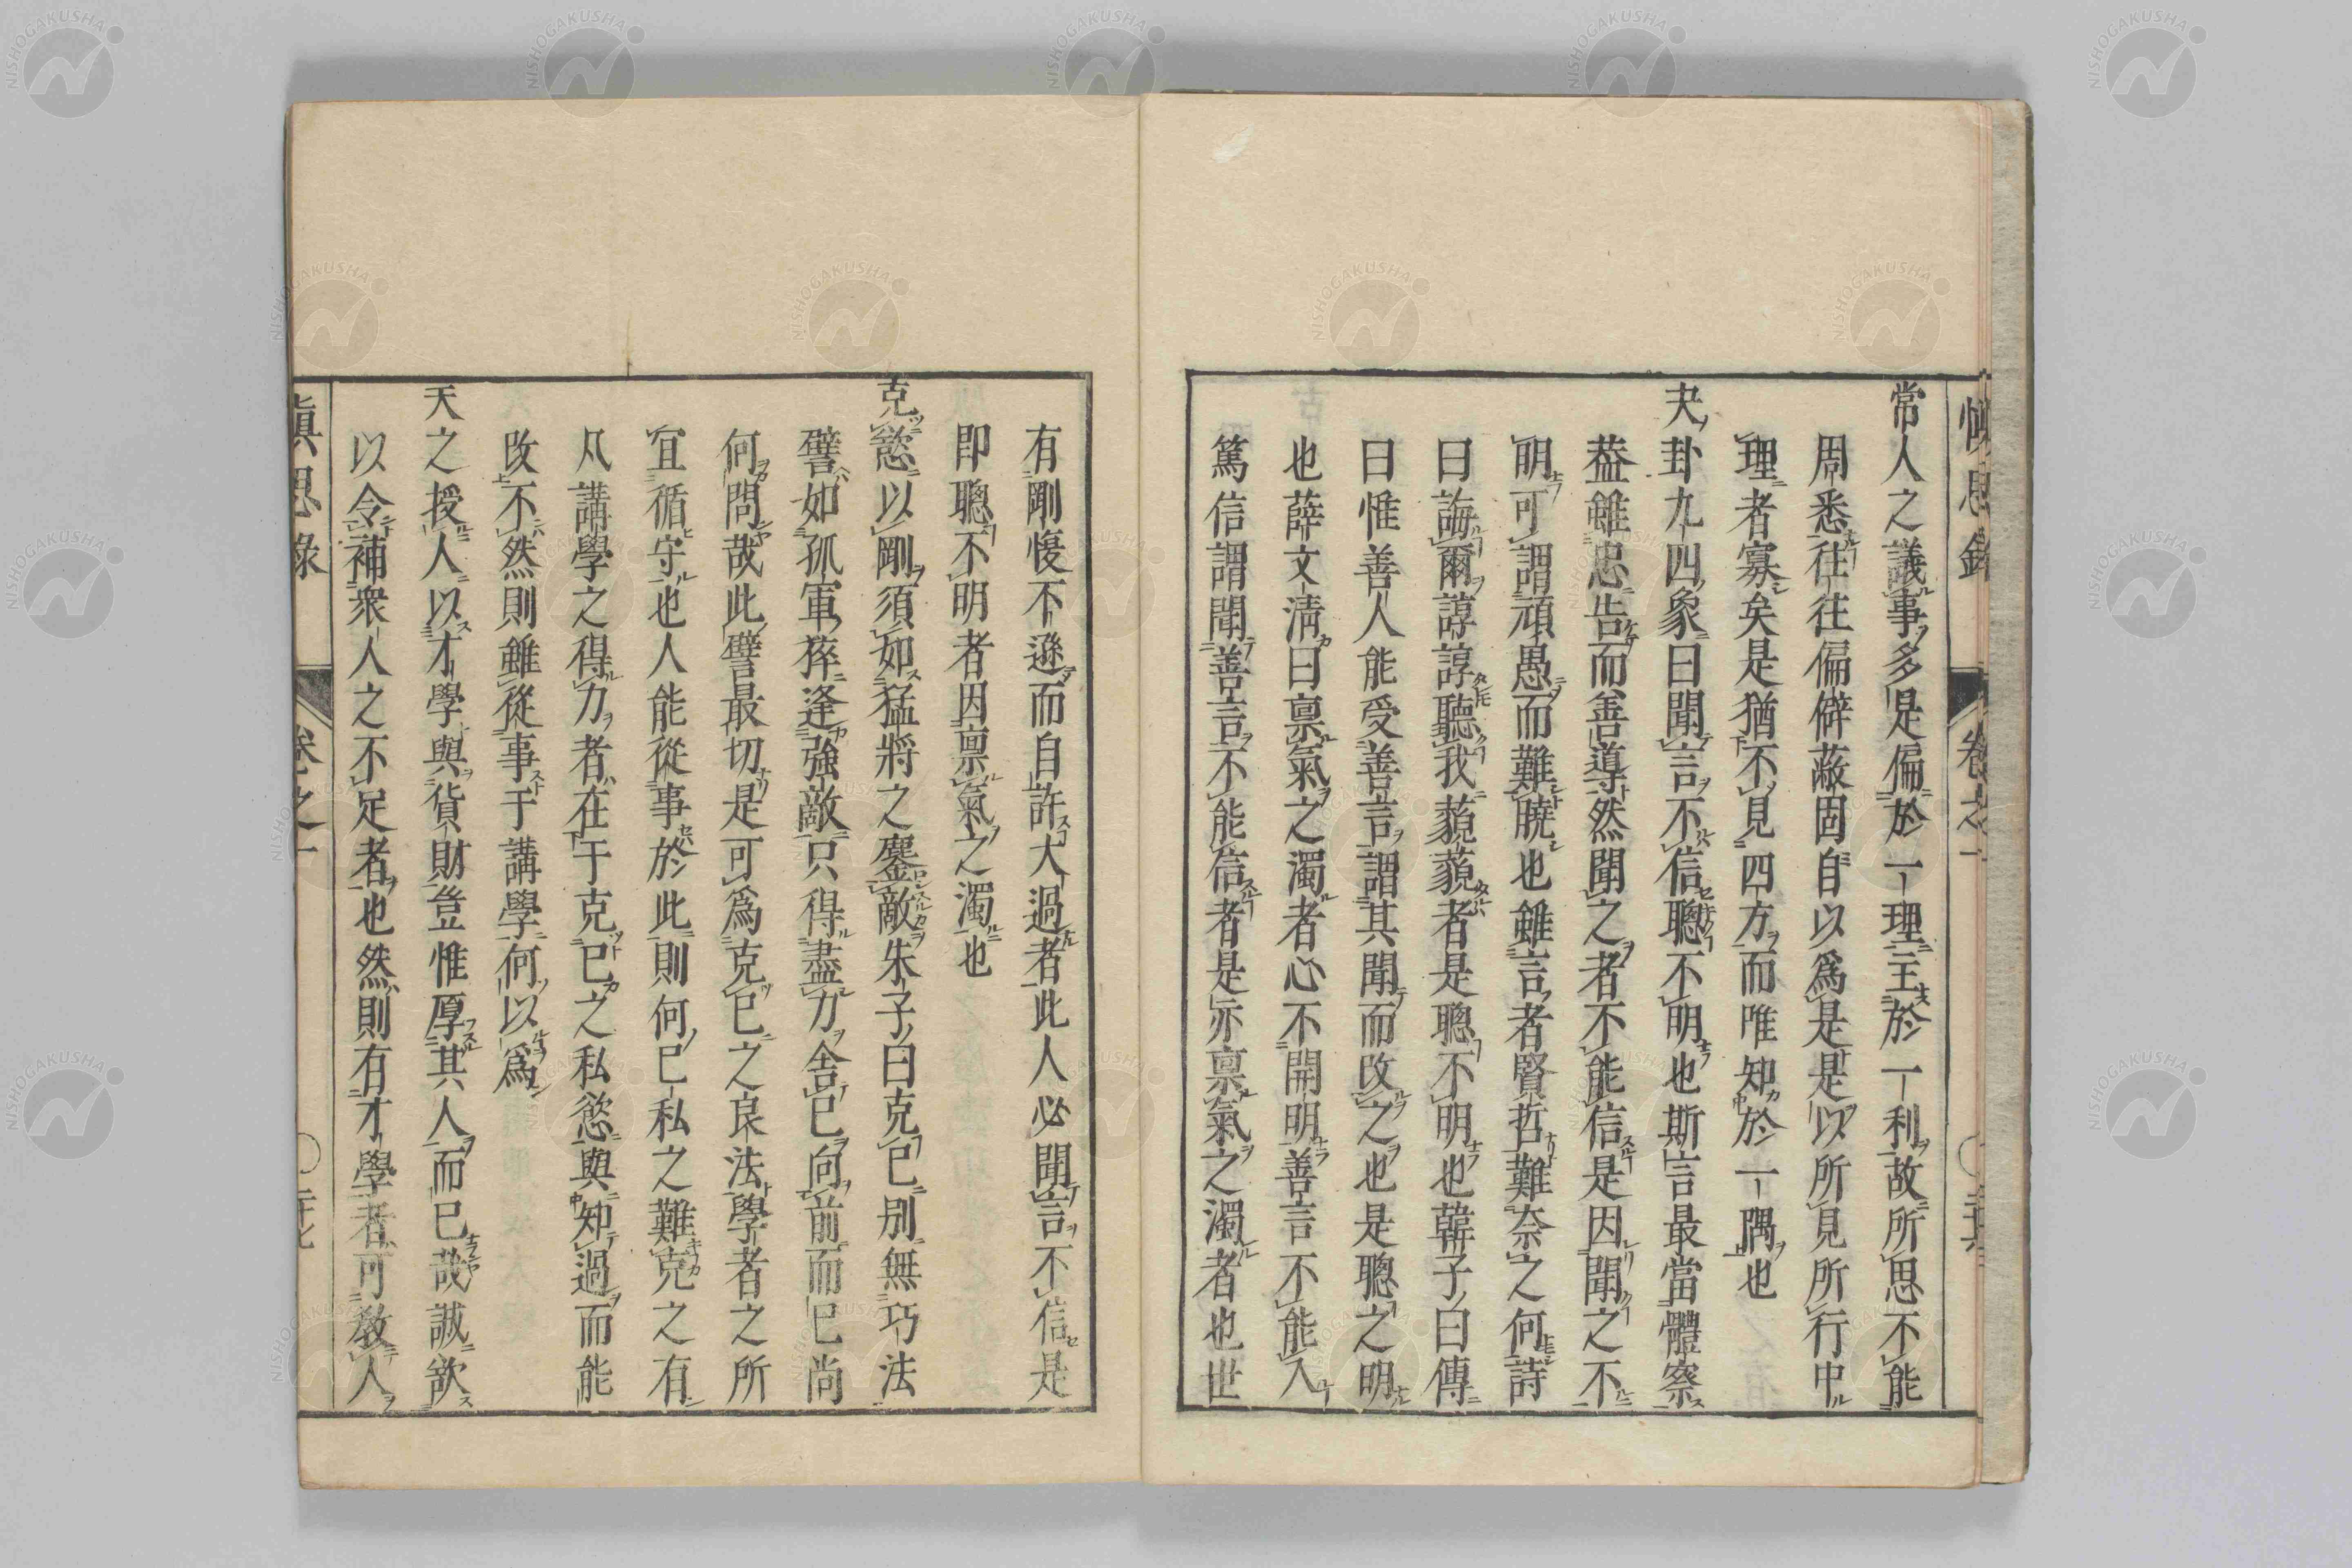 慎思録 卷之一
常人之議事多是偏於一理主於一利故所思不能
周悉往往偏僻蔽固自以爲是是以所見所行中
理者寡矣是猶不見四方而唯知於一隅也
夬卦九四象曰聞言不信聰不明也斯言最當體察
蓋雖忠告而善導然聞之者不能信是因聞之不
明可謂頑愚而難曉也雖言者賢哲難奈之何詩
曰誨爾諄諄聽我藐藐者是聰不明也韓子曰傳
曰惟善人能受善言謂其聞而改之也是聰之明
也薛文淸曰稟氣之濁者心不開明善言不能入
篤信謂聞善言不能信者是亦稟氣之濁者也世
有剛愎不遜而自許大過者此人必聞言不信是
即聰不明者因稟氣之濁也
克慾以剛須如猛將之鏖敵朱子曰克己別無巧法
譬如孤軍猝逢強敵只得盡力舍已向前而已尚
何問哉此譬最切是可爲克已之良法學者之所
宜循守也人能從事於此則何已私之難克之有
凡講學之得力者在于克已之私慾與知過而能
改不然則雖從事于講學何以爲
天之授人以才學與貨財豈惟厚其人而已哉誠欲
以令補衆人之不足者也然則有才學者可敎人
愼思錄 卷之一 二十七
NISHOGAKUSHA